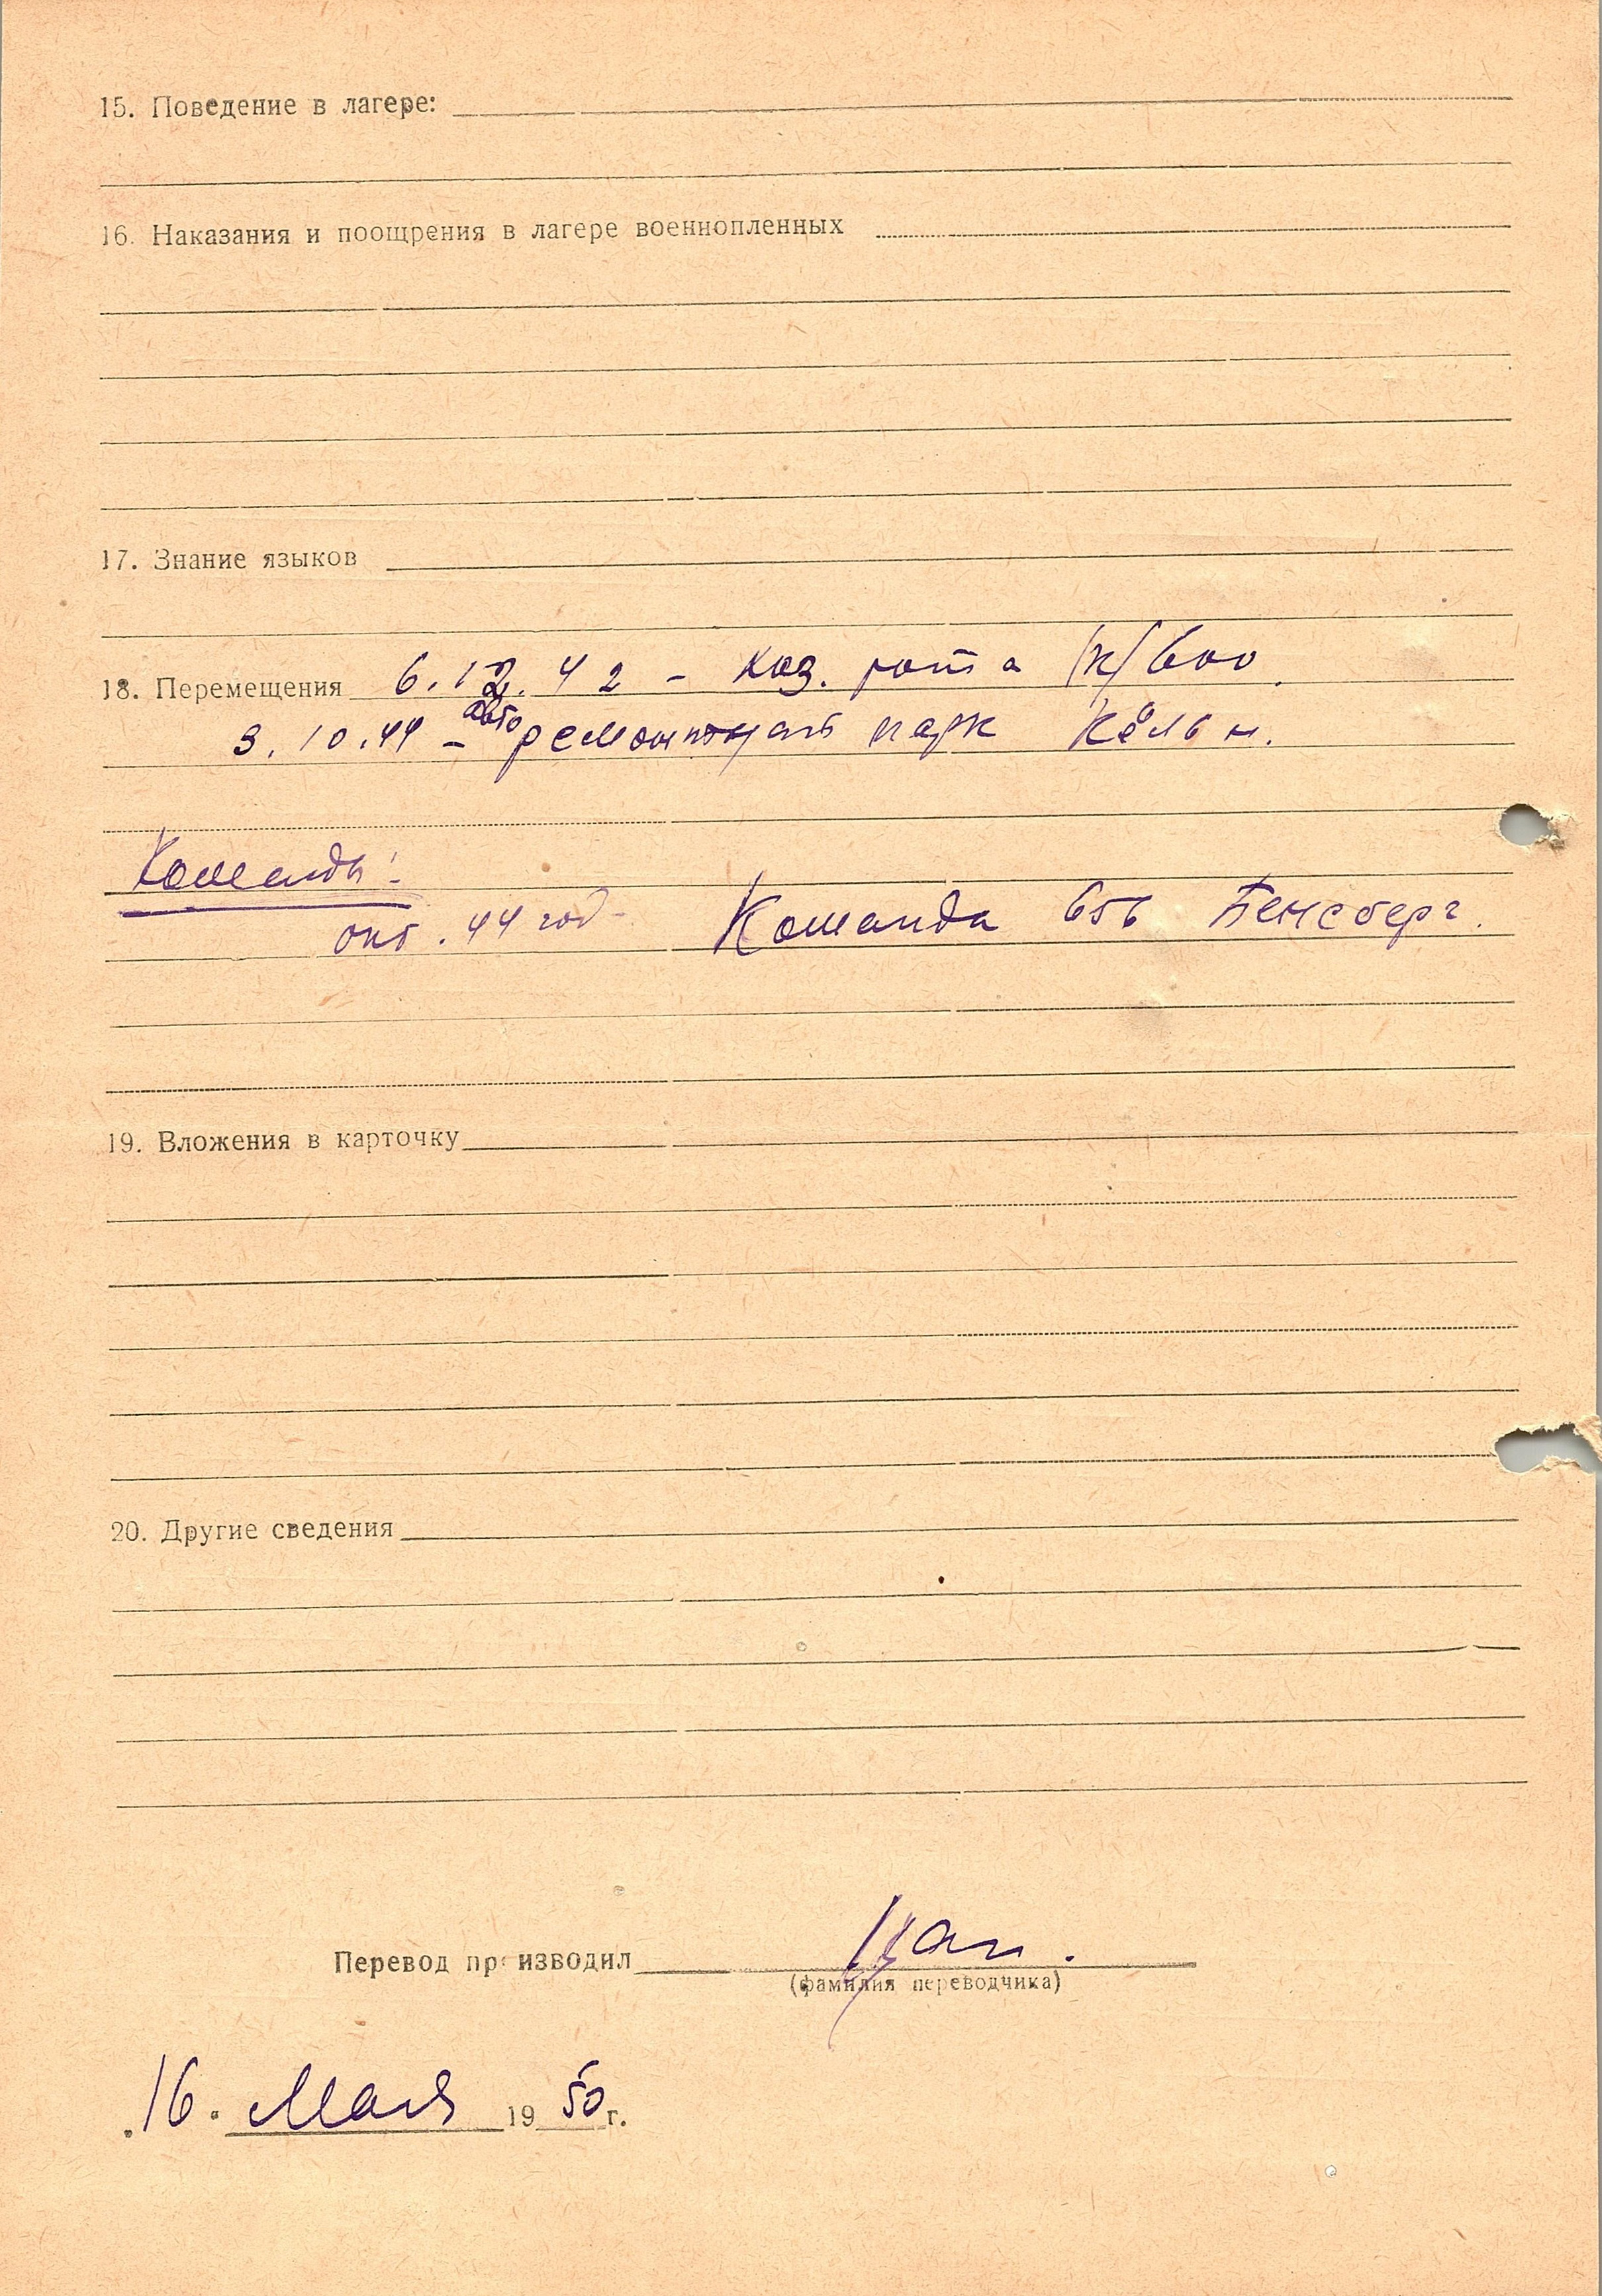 15. Поведение в лагере:
16. Наказания и поощрения в лагере военнопленных
17. Знание языков
18. Перемещения 6.12.42 - каз. рота (к) 600.
3.10.44 - авто ремонтный парк Кёльн.
Команды:
окт. 44 год - Команда 656 Бенсберг.
19. Вложения в карточку
20. Другие сведения
Перевод производил
(фамилия переводчика)
"16" Мая 1950 г.